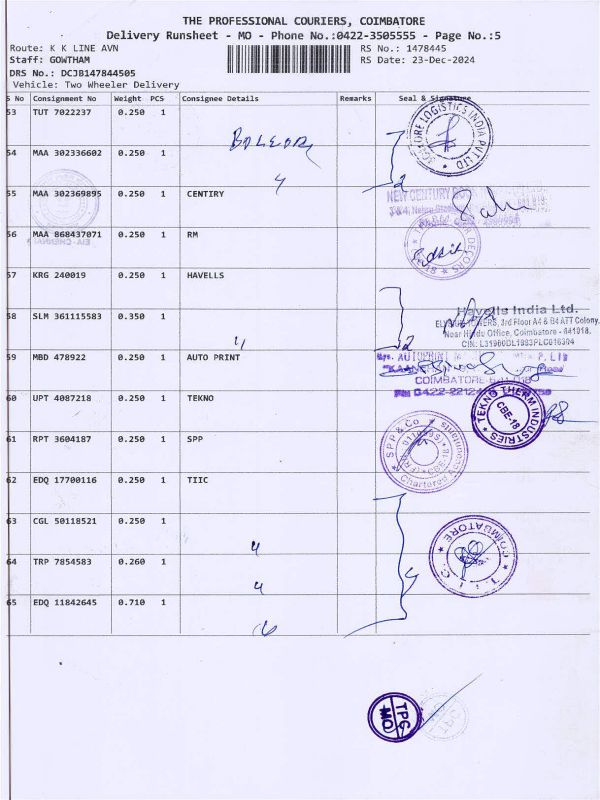 THE PROFESSIONAL COURIERS, COIMBATORE
Delivery Runsheet - MO - Phone No.:0422-3505555 - Page No.:5
Route: K K LINE AVN
RS No.: 1478445
Staff: GOWTHAM
RS Date: 23-Dec-2024
DRS No.: DCJB147844505
Vehicle: Two Wheeler Delivery
S No Consignment No Weight PCS Consignee Details Remarks Seal & Signature
53 TUT 7022237 0.250 1
54 MAA 302336602 0.250 1
55 MAA 302369895 0.250 1 CENTIRY
56 MAA 868437071 0.250 1 RM
57 KRG 240019 0.250 1 HAVELLS
58 SLM 361115583 0.350 1
59 MBD 478922 0.250 1 AUTO PRINT
60 UPT 4087218 0.250 1 TEKNO
61 RPT 3604187 0.250 1 SPP
62 EDQ 17700116 0.250 1 TIIC
63 CGL 50118521 0.250 1
64 TRP 7854583 0.260 1
65 EDQ 11842645 0.710 1
LOGISTICS INDIA PVT LTD
NEW CENTURY
Havells India Ltd.
3rd Floor A4 & B4 ATT Colony,
Near Hindu Office, Coimbatore - 641018.
CIN: L31900DL1983PLC016304
COIMBATORE
TEKNO THERM INDUSTRIES
CBE-18
SPP & Co
Chartered Accountants
COIMBATORE
T I I C
TPC
MO